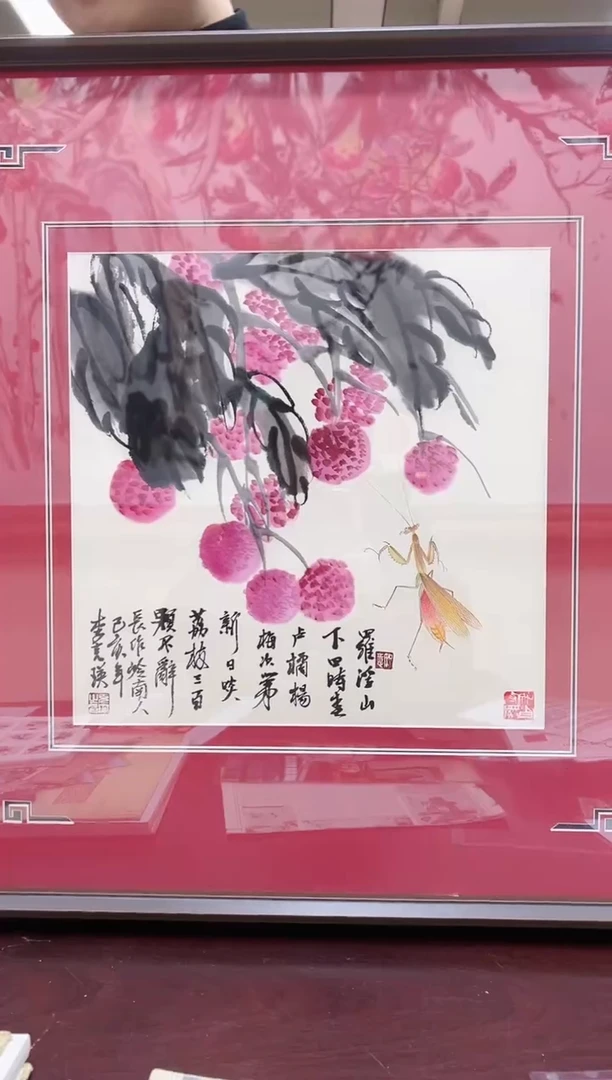 羅浮山
下四時春
卢橘楊
梅次第
新日啖
荔枝三百
顆不辭
長作岭南人
己亥年